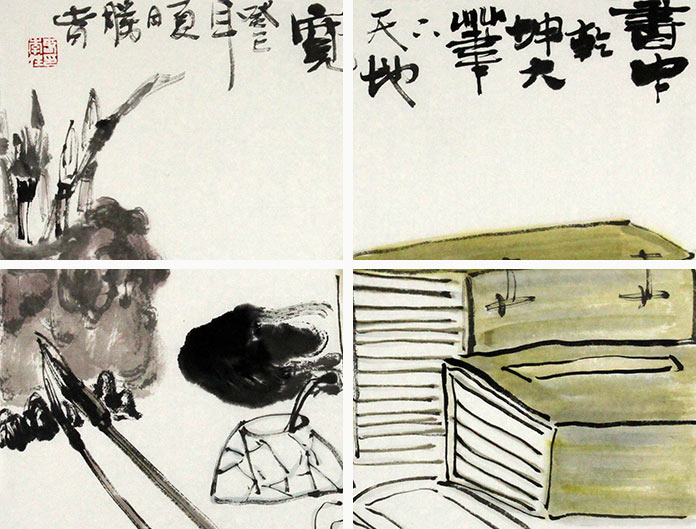 書中
乾
坤大
筆
下
天地
寬
癸巳
年
夏
日
勝